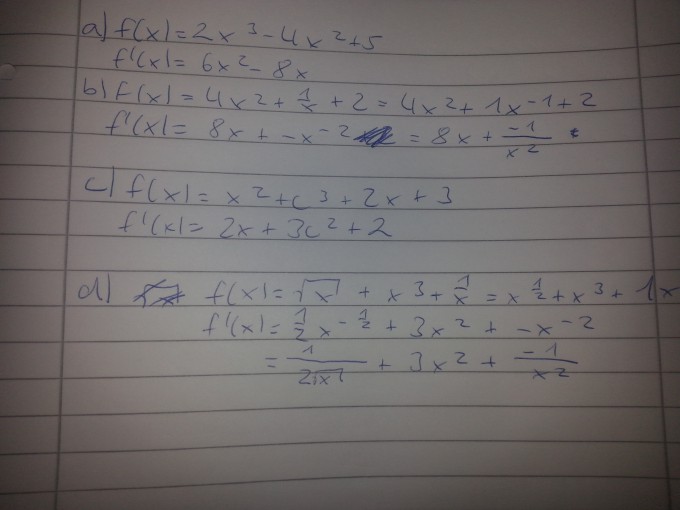 a) f(x) = 2x³ - 4x² + 5
f'(x) = 6x² - 8x
b) f(x) = 4x² + 1/x + 2 = 4x² + 1x⁻¹ + 2
f'(x) = 8x + -x⁻² = 8x + -1/x²
c) f(x) = x² + c³ + 2x + 3
f'(x) = 2x + 3c² + 2
d) f(x) = √x + x³ + 1/x = x^(1/2) + x³ + 1x
f'(x) = 1/2 x^(-1/2) + 3x² + -x⁻²
= 1/(2√x) + 3x² + -1/x²